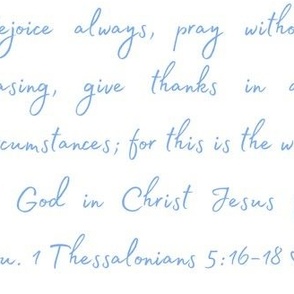 ejoice always, pray witho
asing, give thanks in a
cumstances; for this is the w
God in Christ Jesus
u. 1 Thessalonians 5:16-18